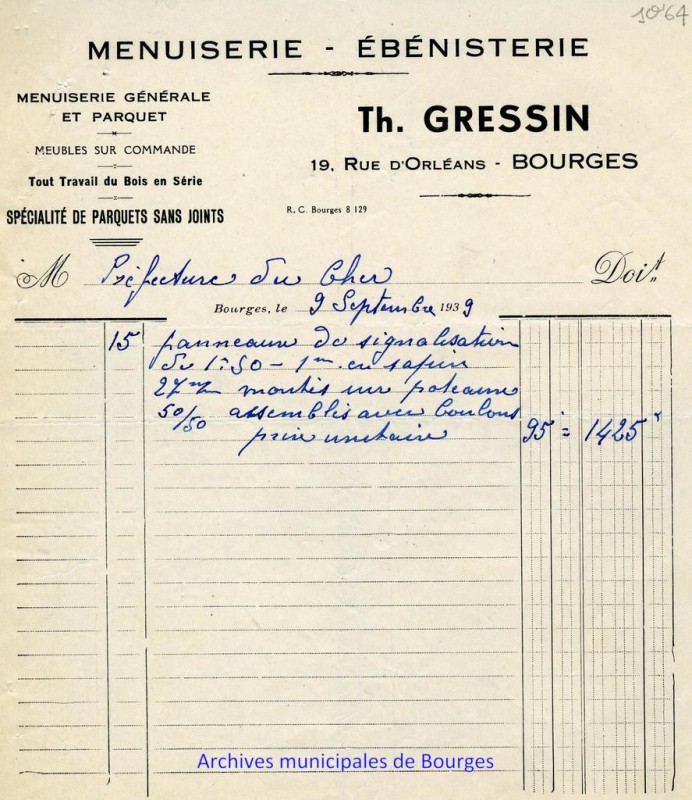 10 64
MENUISERIE - ÉBÉNISTERIE
MENUISERIE GÉNÉRALE
ET PARQUET
MEUBLES SUR COMMANDE
Tout Travail du Bois en Série
SPÉCIALITÉ DE PARQUETS SANS JOINTS
Th. GRESSIN
19, RUE D'ORLÉANS - BOURGES
R. C. Bourges 8 129
M Préfecture du Cher Doit
Bourges, le 9 Septembre 1939
15 panneaux de signalisation
de 1.50 - 1m en sapin
27 m/m montés sur poteaux
50/50 assemblés avec boulons
prix unitaire 95 = 1425
Archives municipales de Bourges